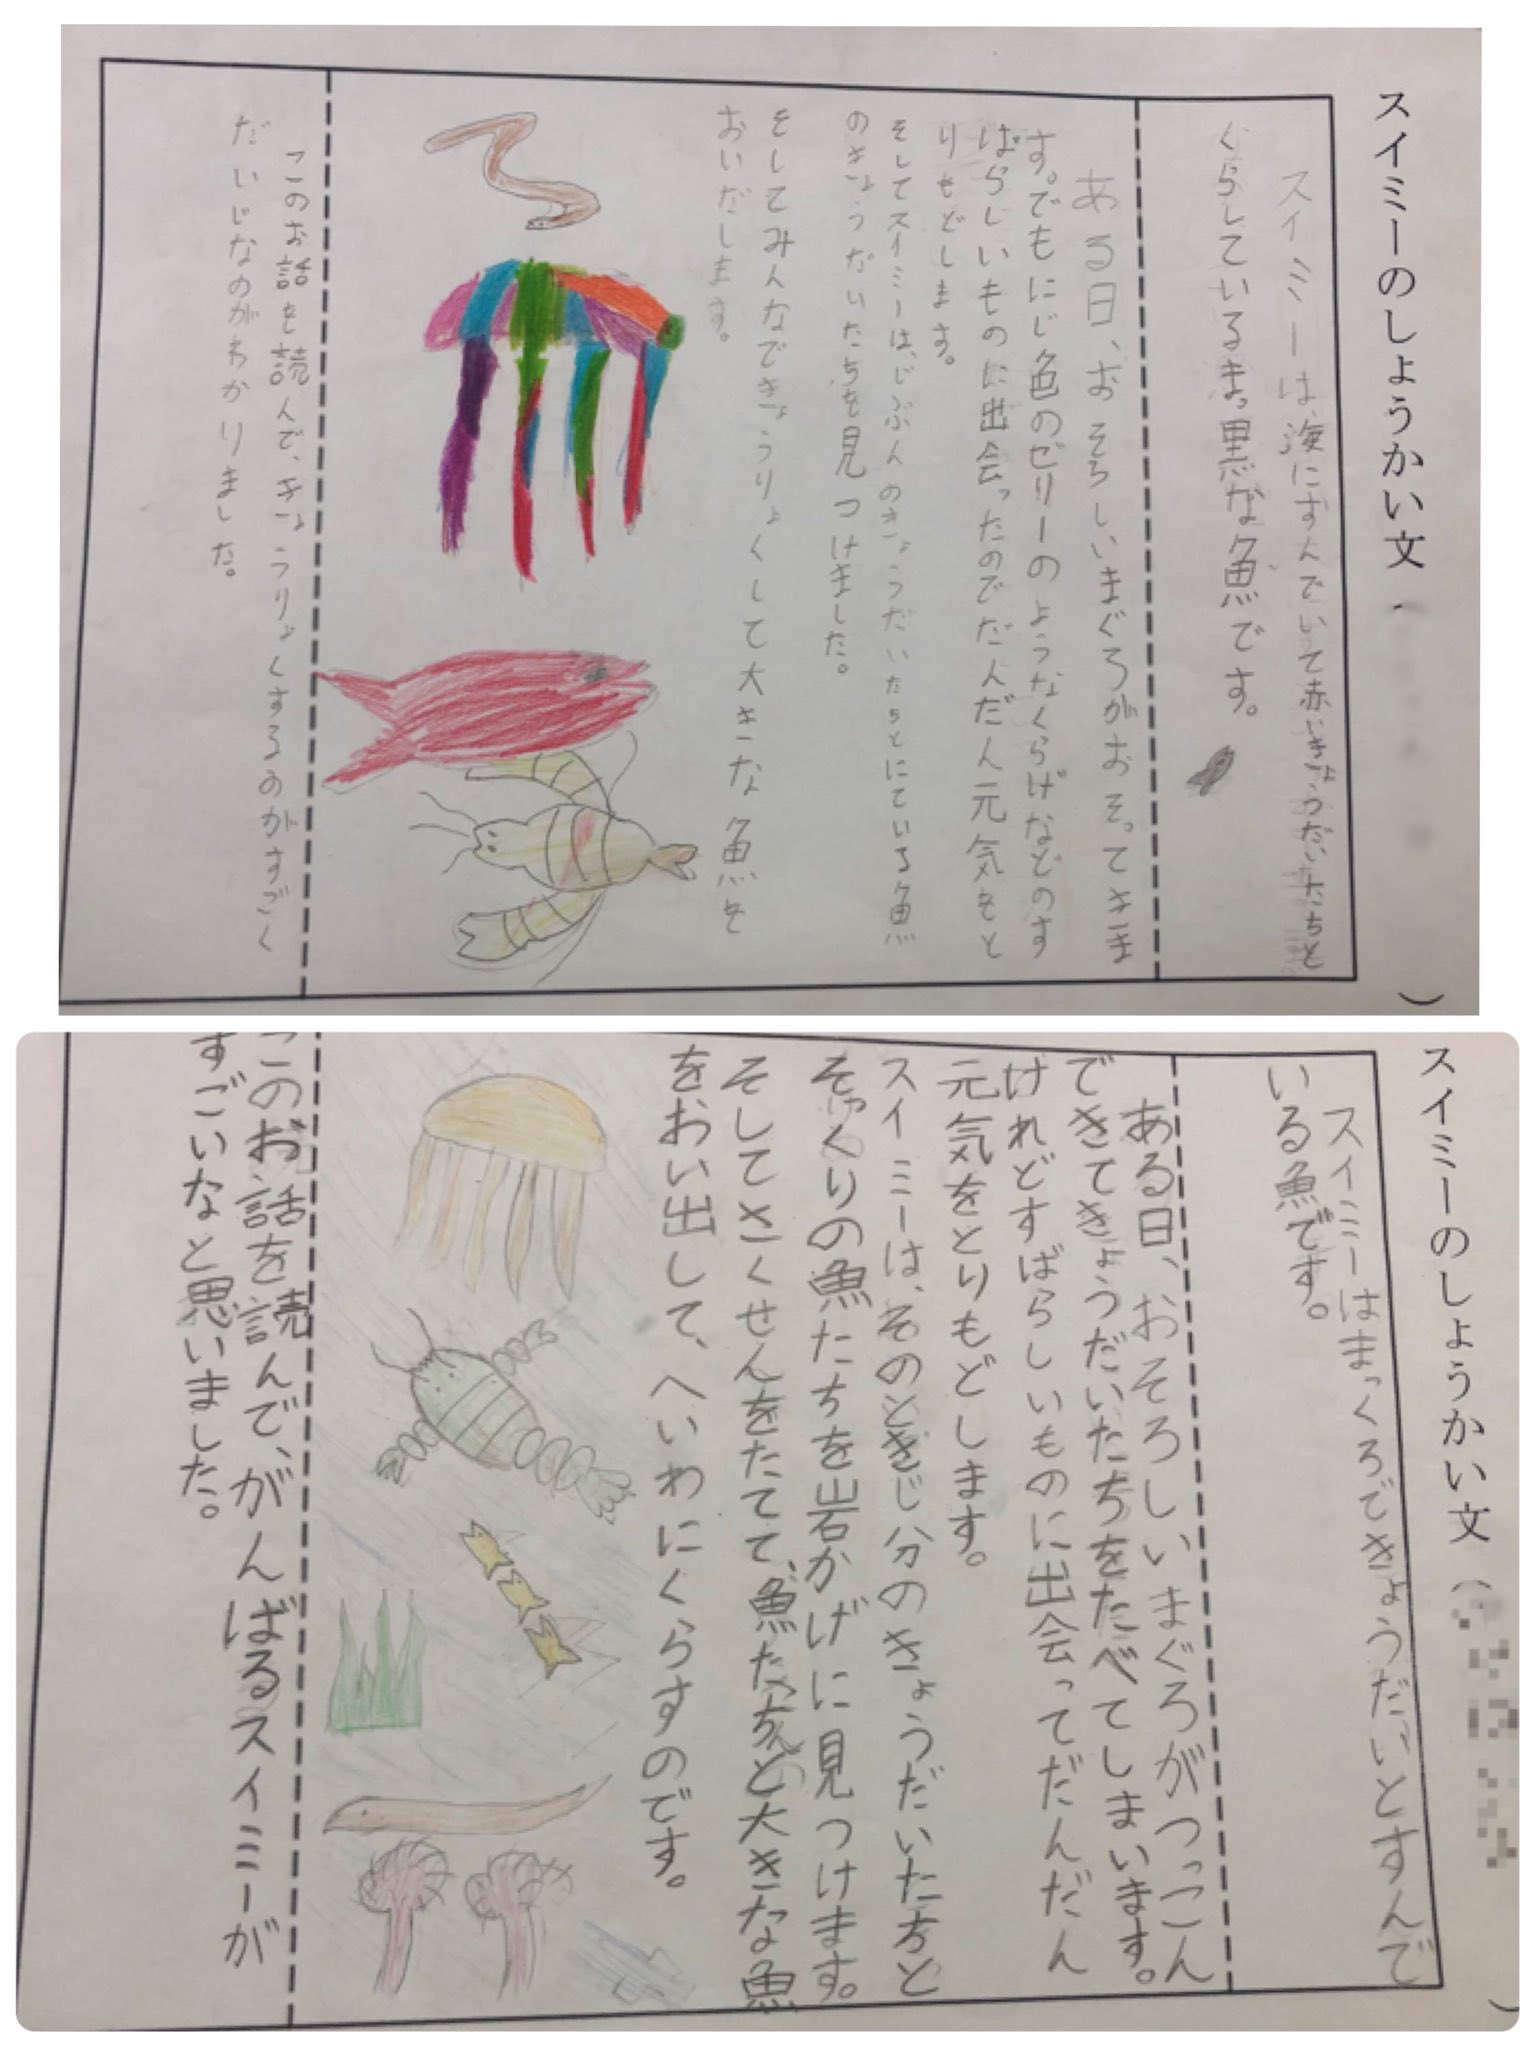 スイミーのしょうかい文
スイミーは、海にすんでいて赤いきょうだいたちと
くらしているまっ黒な魚です。
ある日、おそろしいまぐろがおそってきま
す。でもにじ色のゼリーのようなくらげなどのす
ばらしいものに出会ったのでだんだん元気をと
りもどします。
そしてスイミーは、じぶんのきょうだいたちとにている魚
のきょうだいたちを見つけました。
そしてみんなできょうりょくして大きな魚を
おいだします。
このお話を読んで、きょうりょくするのがすごく
だいじなのがわかりました。
スイミーのしょうかい文(
スイミーはまっくろできょうだいとすんで
いる魚です。
ある日、おそろしいまぐろがつっこん
できてきょうだいたちをたべてしまいます。
けれどすばらしいものに出会ってだんだん
元気をとりもどします。
スイミーは、そのときじ分のきょうだいた方と
そっくりの魚たちを岩かげに見つけます。
そしてさくせんをたてて、魚たちと大きな魚
をおい出して、へいわにくらすのです。
このお話を読んで、がんばるスイミーが
すごいなと思いました。